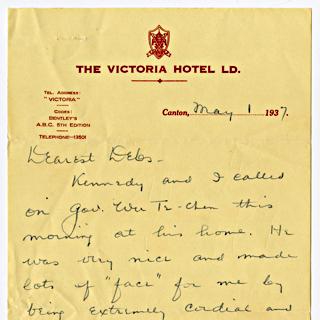 THE VICTORIA HOTEL LD.
TEL. ADDRESS:
"VICTORIA"
CODES:
BENTLEY'S
A.B.C. 5TH EDITION
TELEPHONE-13501
Canton, May 1 1937.
Dearest Debs-
Kennedy and I called
on Gov. Wu Te-chen this
morning at his home. He
was very nice and made
lots of "face" for me by
being extremely cordial and